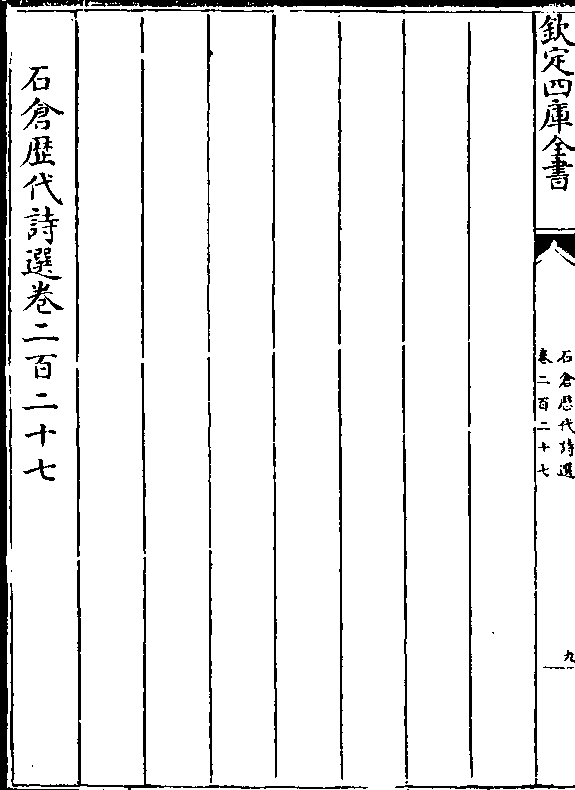 欽定四庫全書
石倉歷代詩選
卷二百二十七
九
石倉歷代詩選卷二百二十七